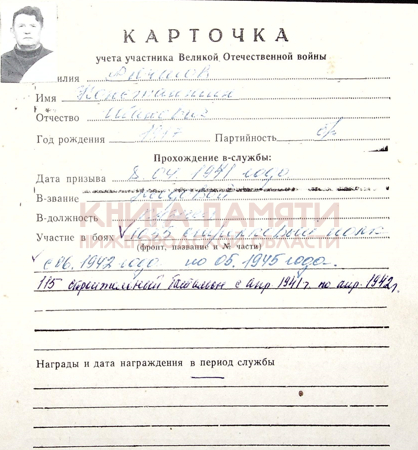 КАРТОЧКА
учета участника Великой Отечественной войны
илия
Имя Константин
Отчество
Год рождения 1917 Партийность б/п
Прохождение в-службы:
Дата призыва 8.04.1941 года
В-звание рядовой
В-должность
КНИГА ПАМЯТИ
НИЖЕГОРОДСКОЙ ОБЛАСТИ
Участие в боях стрелковый полк
(фронт, название и № части)
с 06.1942 года по 05.1945 года.
115 строительный батальон с апр 1941 г. по апр. 1942 г.
Награды и дата награждения в период службы